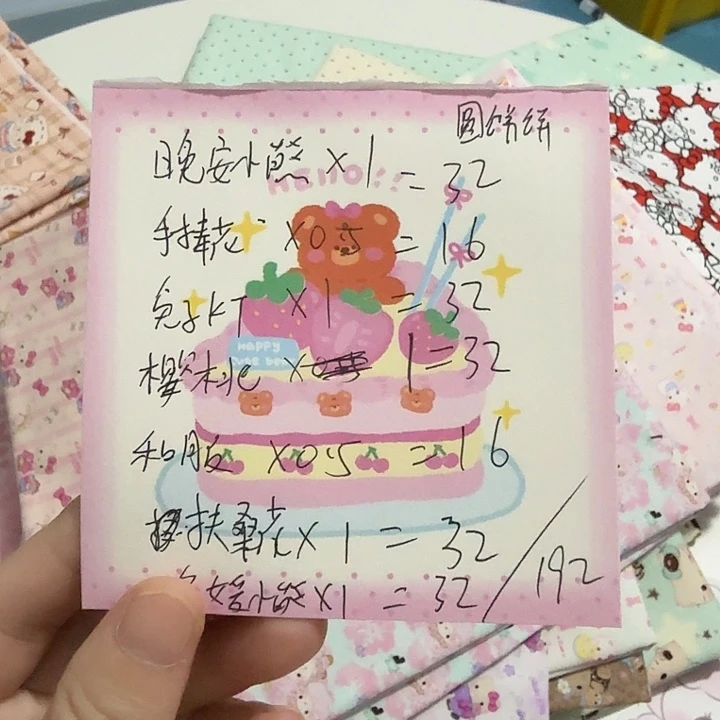 圆饼饼
晚安小熊 X 1 = 32
HELLO!!
手捧花 X 0.5 = 16
兔子KT X 1 = 32
HAPPY
樱桃 X 1 = 32
和服 X 0.5 = 16
扶桑花 X 1 = 32
小熊 X 1 = 32 / 192